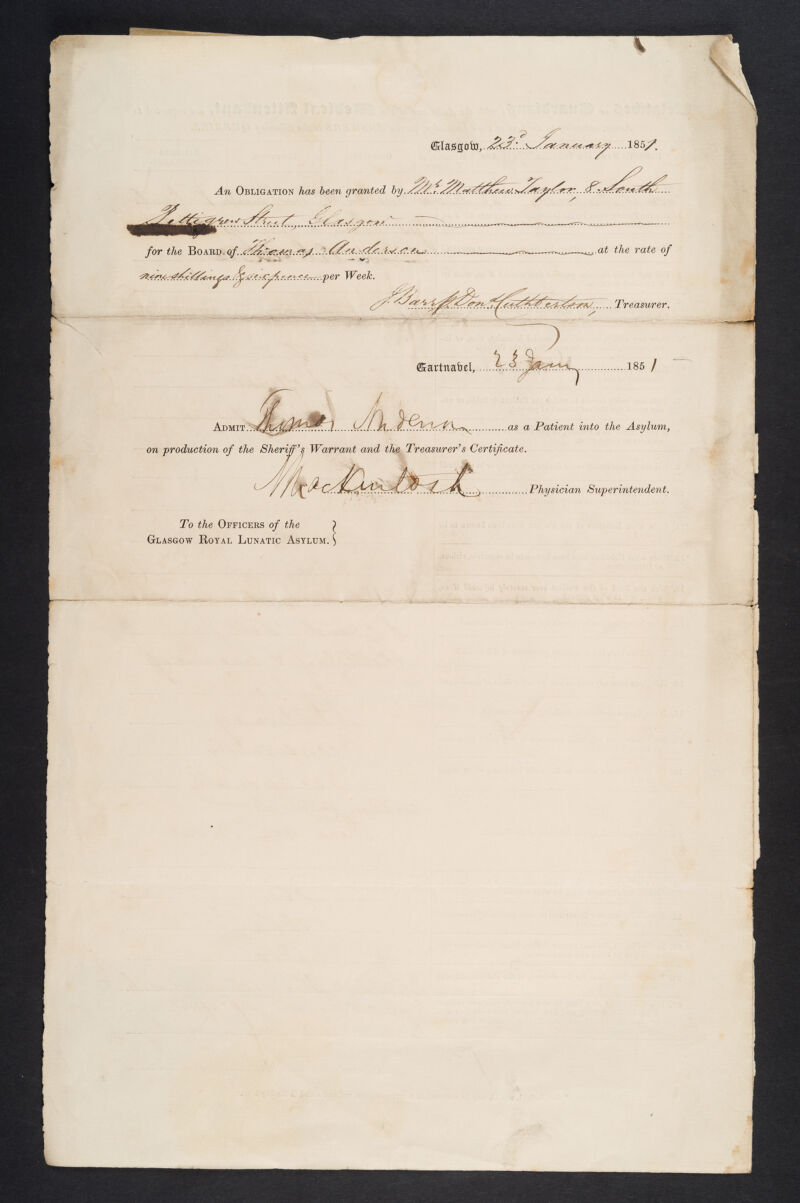 Glasgow, 23d. January 1851.
An Obligation has been granted by Mr. Matthew Taylor, 8 South
Pettigrew Street Glasgow
for the Board of Thomas Anderson at the rate of
nine shillings & six pence per Week.
J. Barr p. Don. Cuthbertson, Treasurer.
Gartnavel, 23 Jany 1851
Admit Thomas Anderson as a Patient into the Asylum,
on production of the Sheriff's Warrant and the Treasurer's Certificate.
Mackintosh Physician Superintendent.
To the Officers of the
Glasgow Royal Lunatic Asylum. }